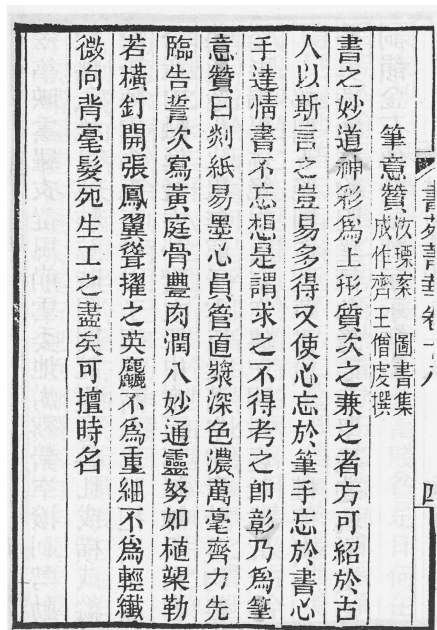 書苑菁華卷十八
四
筆意贊 汝瑮案圖書集
成作齊王僧虔撰
書之妙道神彩爲上形質次之兼之者方可紹於古
人以斯言之豈易多得又使心忘於筆手忘於書心
手達情書不忘想是謂求之不得考之即彰乃爲筆
意贊曰剡紙易墨心員管直漿深色濃萬毫齊力先
臨告誓次寫黃庭骨豐肉潤八妙通靈努如植槊勒
若橫釘開張鳳翼聳擢之英麤不爲重細不爲輕纖
微向背毫髮死生工之盡矣可擅時名